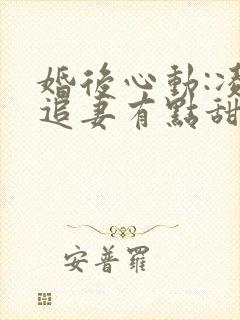 婚後心動:凌
追妻有點甜
安普羅